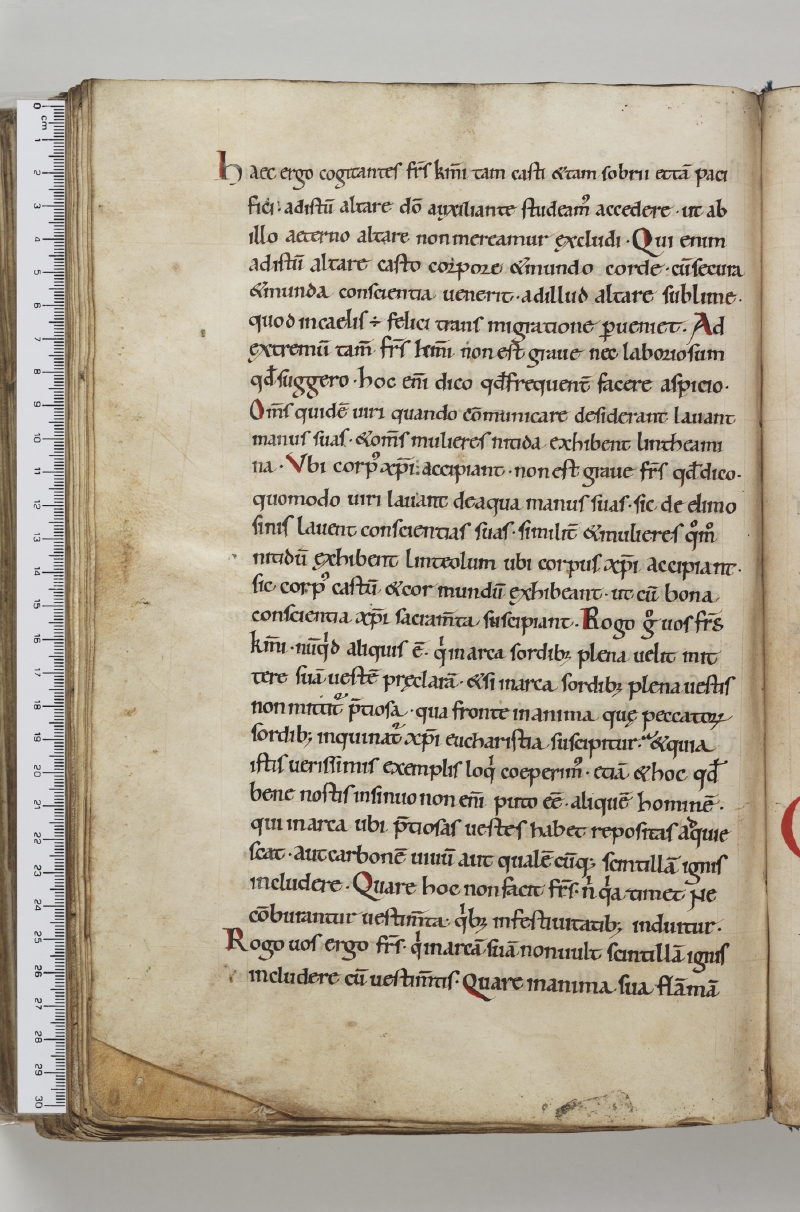 Haec ergo cogitantes fr̄s km̄i tam casti &tam sobrii et tā paci
fici· adistū altare dō auxiliante studeam᷒ accedere · ut ab
illo aeterno altare non mereamur ęxcludi · Qui enim
adistū altare casto corpore &mundo corde · cū secura
&munda conscientia uenerit · adillud altare sublime ·
quod incaelis ÷ felici trans migratione ꝑueniet · Ad
ęxtremū tam̄ fr̄s km̄i non est graue nec laboriosum
qđ suggero · hoc em̄ dico qđ frequent̄ facere aspicio ·
Om̄s quidē uiri quando cōmunicare desiderant lauant
manus suas · &om̄s mulieres nitida exhibent linteami
na · Vbi corp᷒ xp̄i accipiant · non est graue fr̄s qđ dico ·
quomodo uiri lauant deaqua manus suas · sic de elimo
sinis lauent conscientias suas · similit̄ &mulieres qͦmͦ
nitidū ęxhibent linteolum ubi corpus xp̄i accipiant ·
sic corp᷒ castū &cor mundū ęxhibeant · ut cū bona
conscientia xp̄i sacram̄ta suscipiant · Rogo gͦ uos fr̄s
km̄i · nūqͥd aliquis ē · qͥ inarca sordibꝫ plena uelit mit
tere suā uestē pręclarā · &si inarca sordibꝫ plena uestis
non mittit᷒ p̄tiosa · qua fronte inanima quę peccatoꝝ
sordibꝫ inquinat᷒ xp̄i eucharistia suscipitur · &quia
istis uerissimis exemplis loqͥ coeperim᷒ · etiā &hoc qđ
bene nostis insinuo non em̄ puto eē · aliquē hominē ·
qui inarca ubi p̄tiosas uestes habet repositas adquie
scat · aut carbonē uiuū aut qualē cūqꝫ scintillā ignis
includere · Quare hoc non facit fr̄s · n̄ qͥa timet Ne
cōburantur uestim̄ta · qͥbꝫ infestiuitatibꝫ induitur ·
Rogo uos ergo fr̄s · qͥ inarcā suā nonuult scintillā ignis
includere cū uestim̄tis · Quare inanima sua flāmā